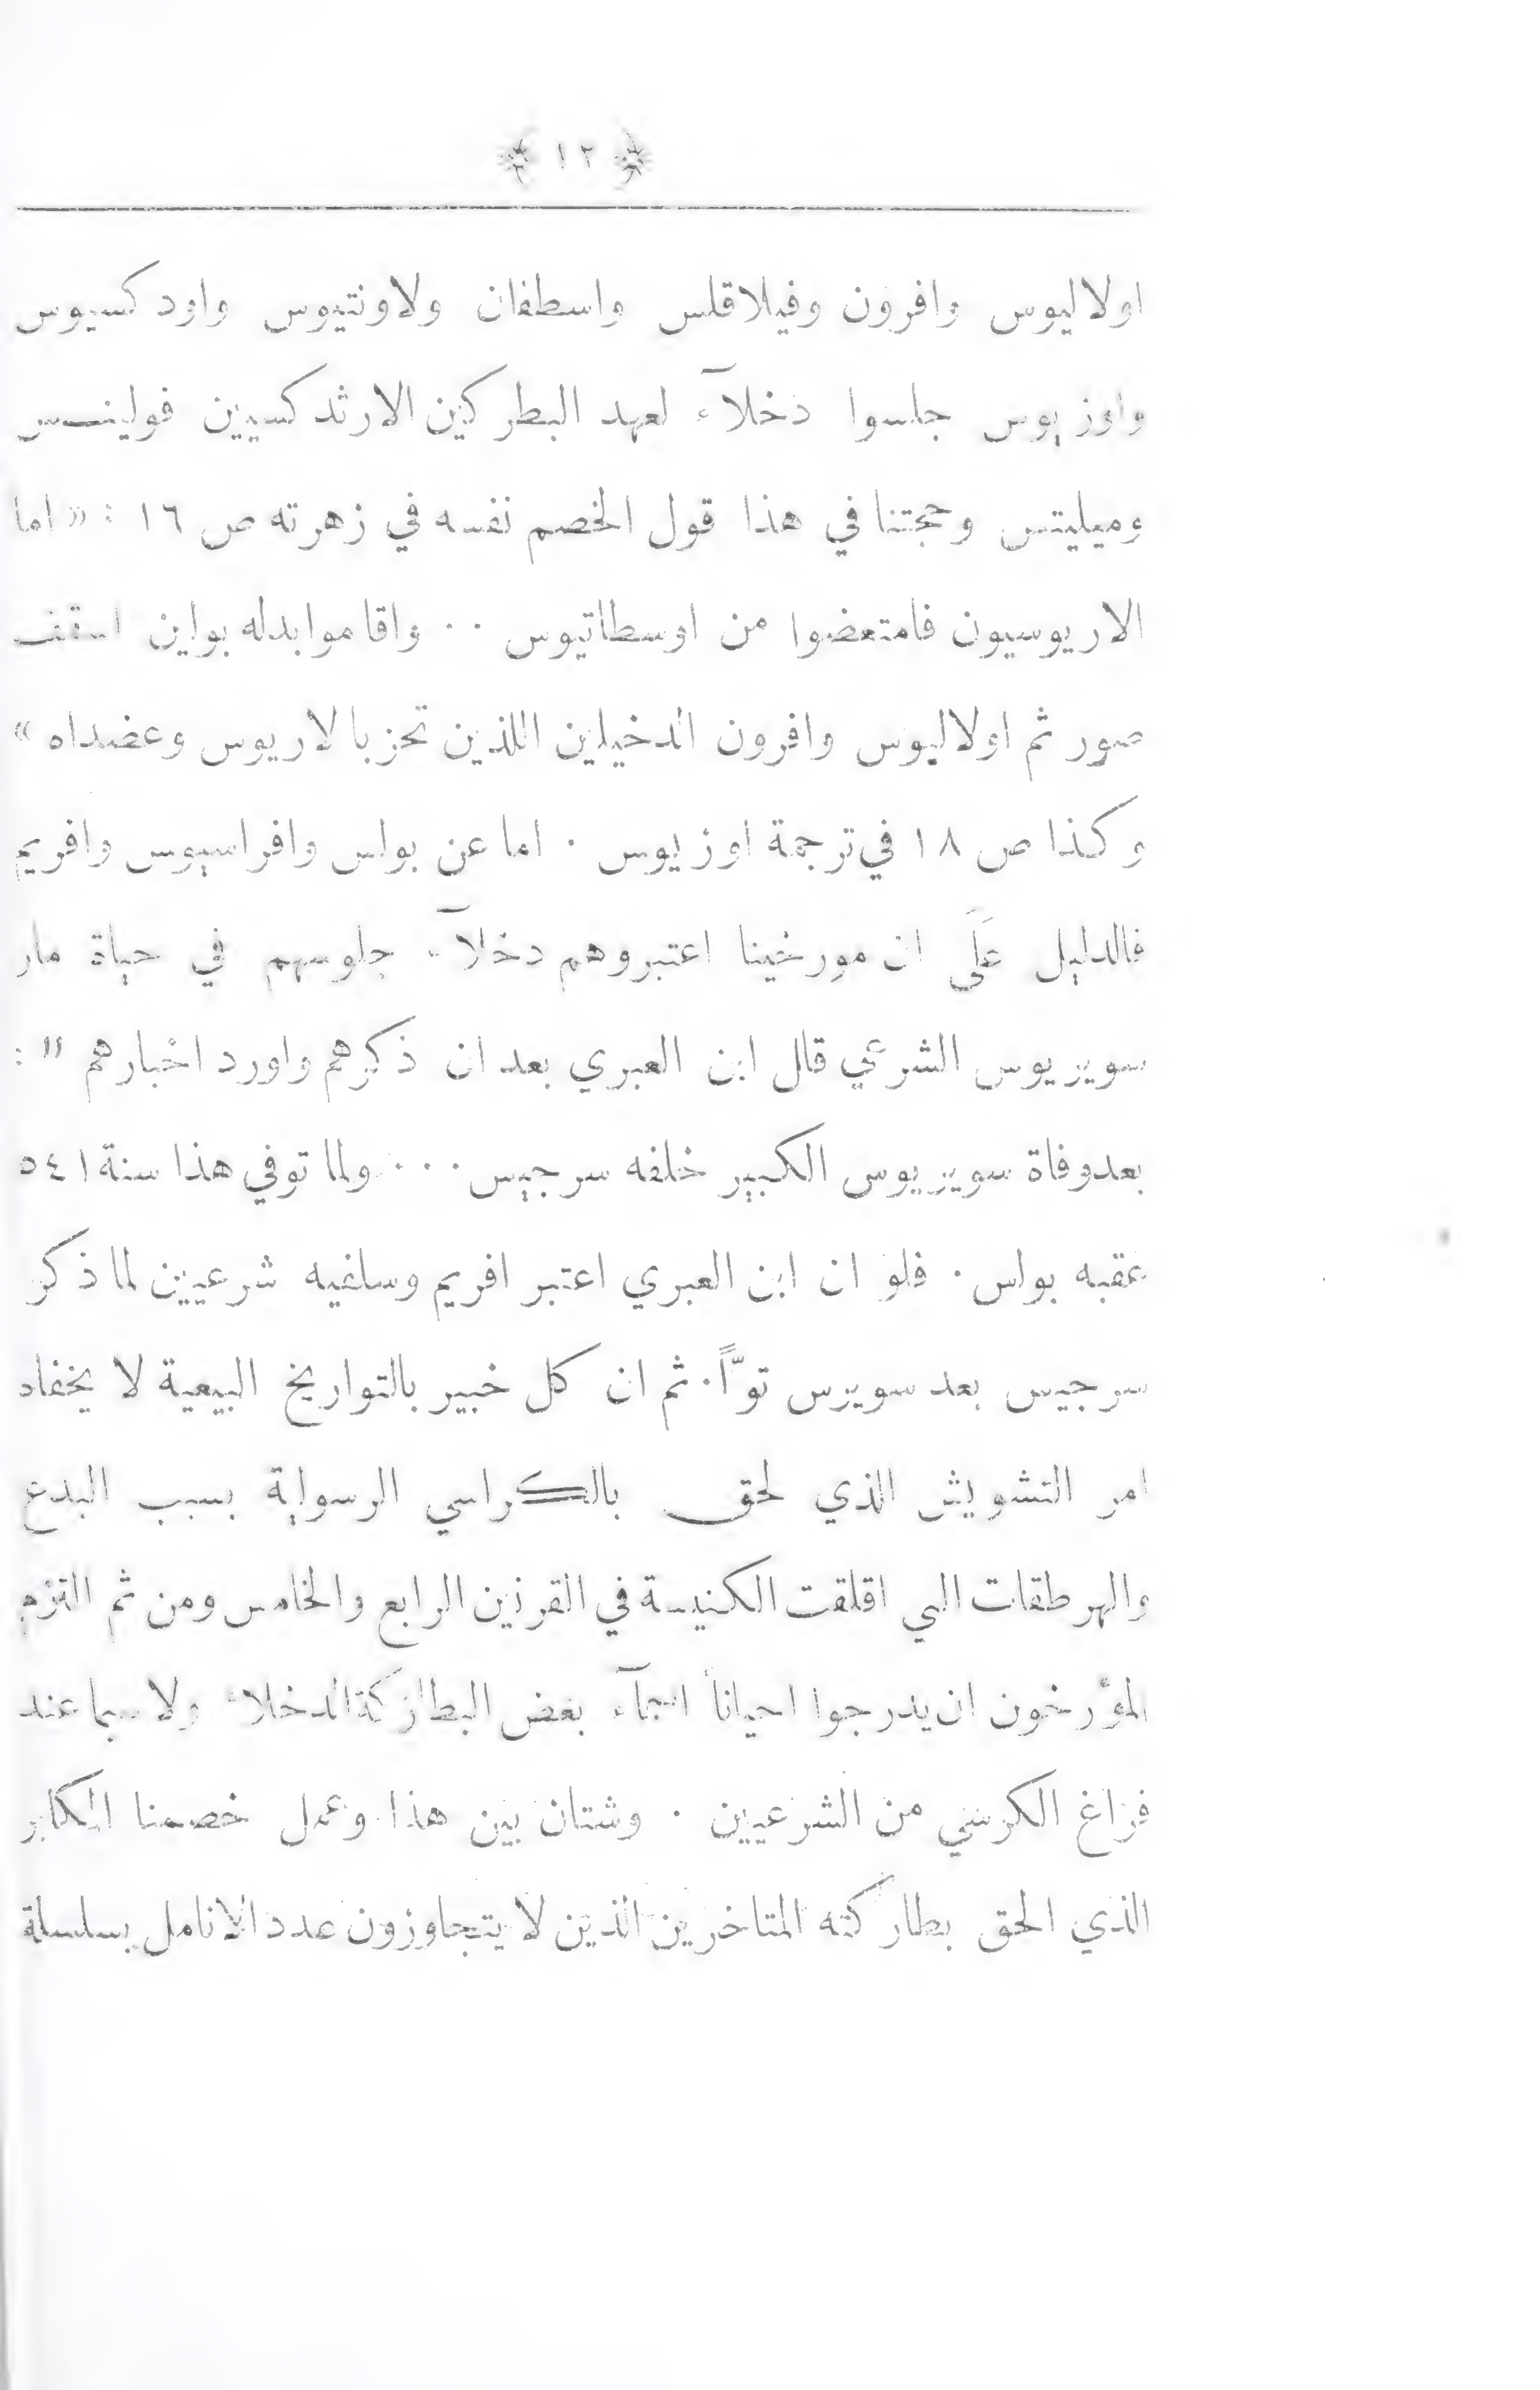 ﴿ ١٢ ﴾
اولاليوس وافرون وفيلاقلس واسطفان ولاونتيوس واودكسيوس
واوزيوس جلسوا دخلآء لعهد البطركين الارثدكسيين فولينس
وميليتس وحجتنا في هذا قول الخصم نفسه في زهرته ص ١٦ : « اما
الاريوسيون فامتعضوا من اوسطاتيوس ٠٠ واقاموا بدله بولين اسقف
صور ثم اولاليوس وافرون الدخيلين اللذين تحزبا لاريوس وعضداه »
وكذا ص ١٨ في ترجمة اوزيوس ٠ اما عن بولس وافراسيوس وافريم
فالدليل عَلَى ان مورخينا اعتبروهم دخلآء جلوسهم في حياة مار
سويريوس الشرعي قال ابن العبري بعد ان ذكرهم واورد اخبارهم " :
بعد وفاة سويريوس الكبير خلفه سرجيس ٠٠٠ ولما توفي هذا سنة ٥٤١
عقبه بولس ٠ فلو ان ابن العبري اعتبر افريم وسلفيه شرعيين لما ذكر
سرجيس بعد سويرس توًّا ٠ ثم ان كل خبير بالتواريخ البيعية لا يخفاه
امر التشويش الذي لحق بالكراسي الرسولية بسبب البدع
والهرطقات التي اقلقت الكنيسة في القرنين الرابع والخامس ومن ثم التزم
المؤرخون ان يدرجوا احياناً اسمآء بعض البطاركة الدخلاء ولا سيما عند
فراغ الكرسي من الشرعيين ٠ وشتان بين هذا وعمل خصمنا المكابر
الذي الحق بطاركته المتاخرين الذين لا يتجاوزون عدد الانامل بسلسلة